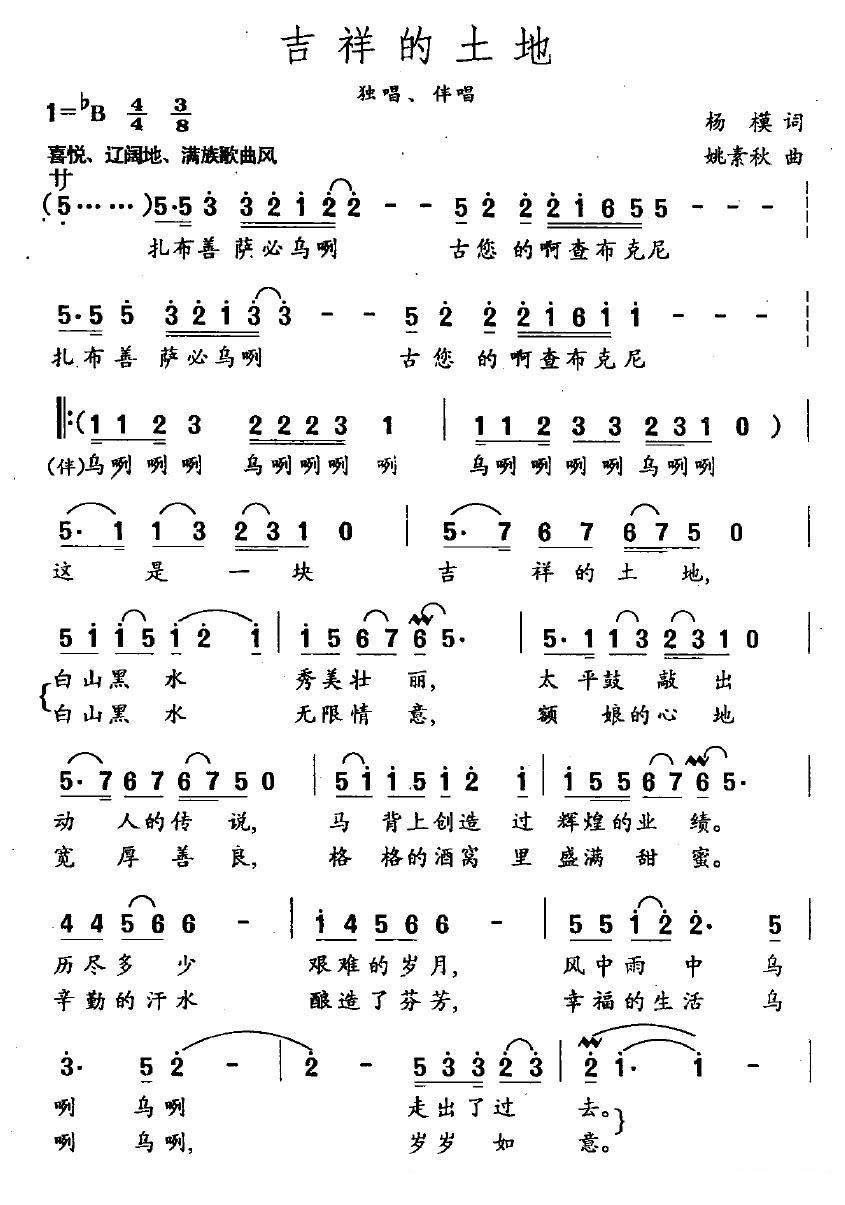 吉祥的土地
独唱、伴唱
1=♭B 4/4 3/8
杨 模 词
喜悦、辽阔地、满族歌曲风
姚素秋 曲
サ
(5 …… ) 5·5 3 3 2 1 2 2 - - 5 2 2 2 1 6 5 5 - - -
扎布善 萨必乌咧 古您 的啊查布克尼
5·5 5 3 2 1 3 3 - - 5 2 2 2 1 6 1 1 - - -
扎布善 萨必乌咧 古您 的啊查布克尼
‖:(1 1 2 3 2 2 2 3 1 | 1 1 2 3 3 2 3 1 0 ) |
(伴)乌咧咧咧 乌咧咧咧 咧 乌咧咧咧咧乌咧咧
5· 1 1 3 2 3 1 0 | 5· 7 6 7 6 7 5 0 |
这 是 一 块 吉 祥的土 地,
5 1 1 5 1 2 1 | 1 5 6 7 6 5· | 5·1 1 3 2 3 1 0
白山黑 水 秀美壮 丽, 太 平鼓 敲 出
白山黑 水 无限情 意, 额 娘的心 地
5·7 6 7 6 7 5 0 | 5 1 1 5 1 2 1 | 1 5 5 6 7 6 5·
动 人的传 说, 马 背上创造 过 辉煌的业 绩。
宽 厚善 良, 格 格的酒窝 里 盛满 甜 蜜。
4 4 5 6 6 - | 1 4 5 6 6 - | 5 5 1 2 2· 5
历尽多 少 艰难的岁月, 风中雨 中 乌
辛勤的汗水 酿造了芬芳, 幸福的生活 乌
3· 5 2 - | 2 - 5 3 3 2 3 | 2 1· 1 - |
咧 乌咧 走出了过 去。
咧 乌咧, 岁岁 如 意。